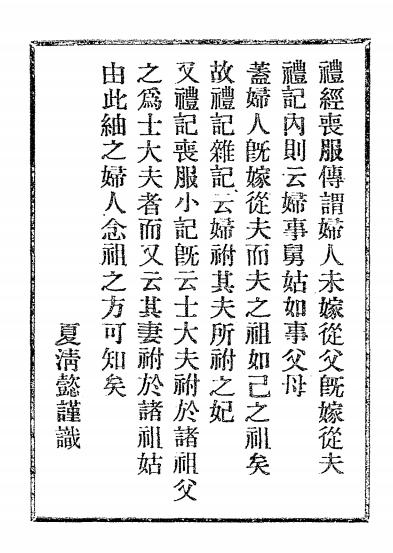 禮經喪服傳謂婦人未嫁從父旣嫁從夫
禮記內則云婦事舅姑如事父母
蓋婦人旣嫁從夫而夫之祖如己之祖矣
故禮記雜記云婦祔其夫所祔之妃
又禮記喪服小記旣云士大夫祔於諸祖父
之爲士大夫者而又云其妻祔於諸祖姑
由此紬之婦人念祖之方可知矣
夏淸懿謹識